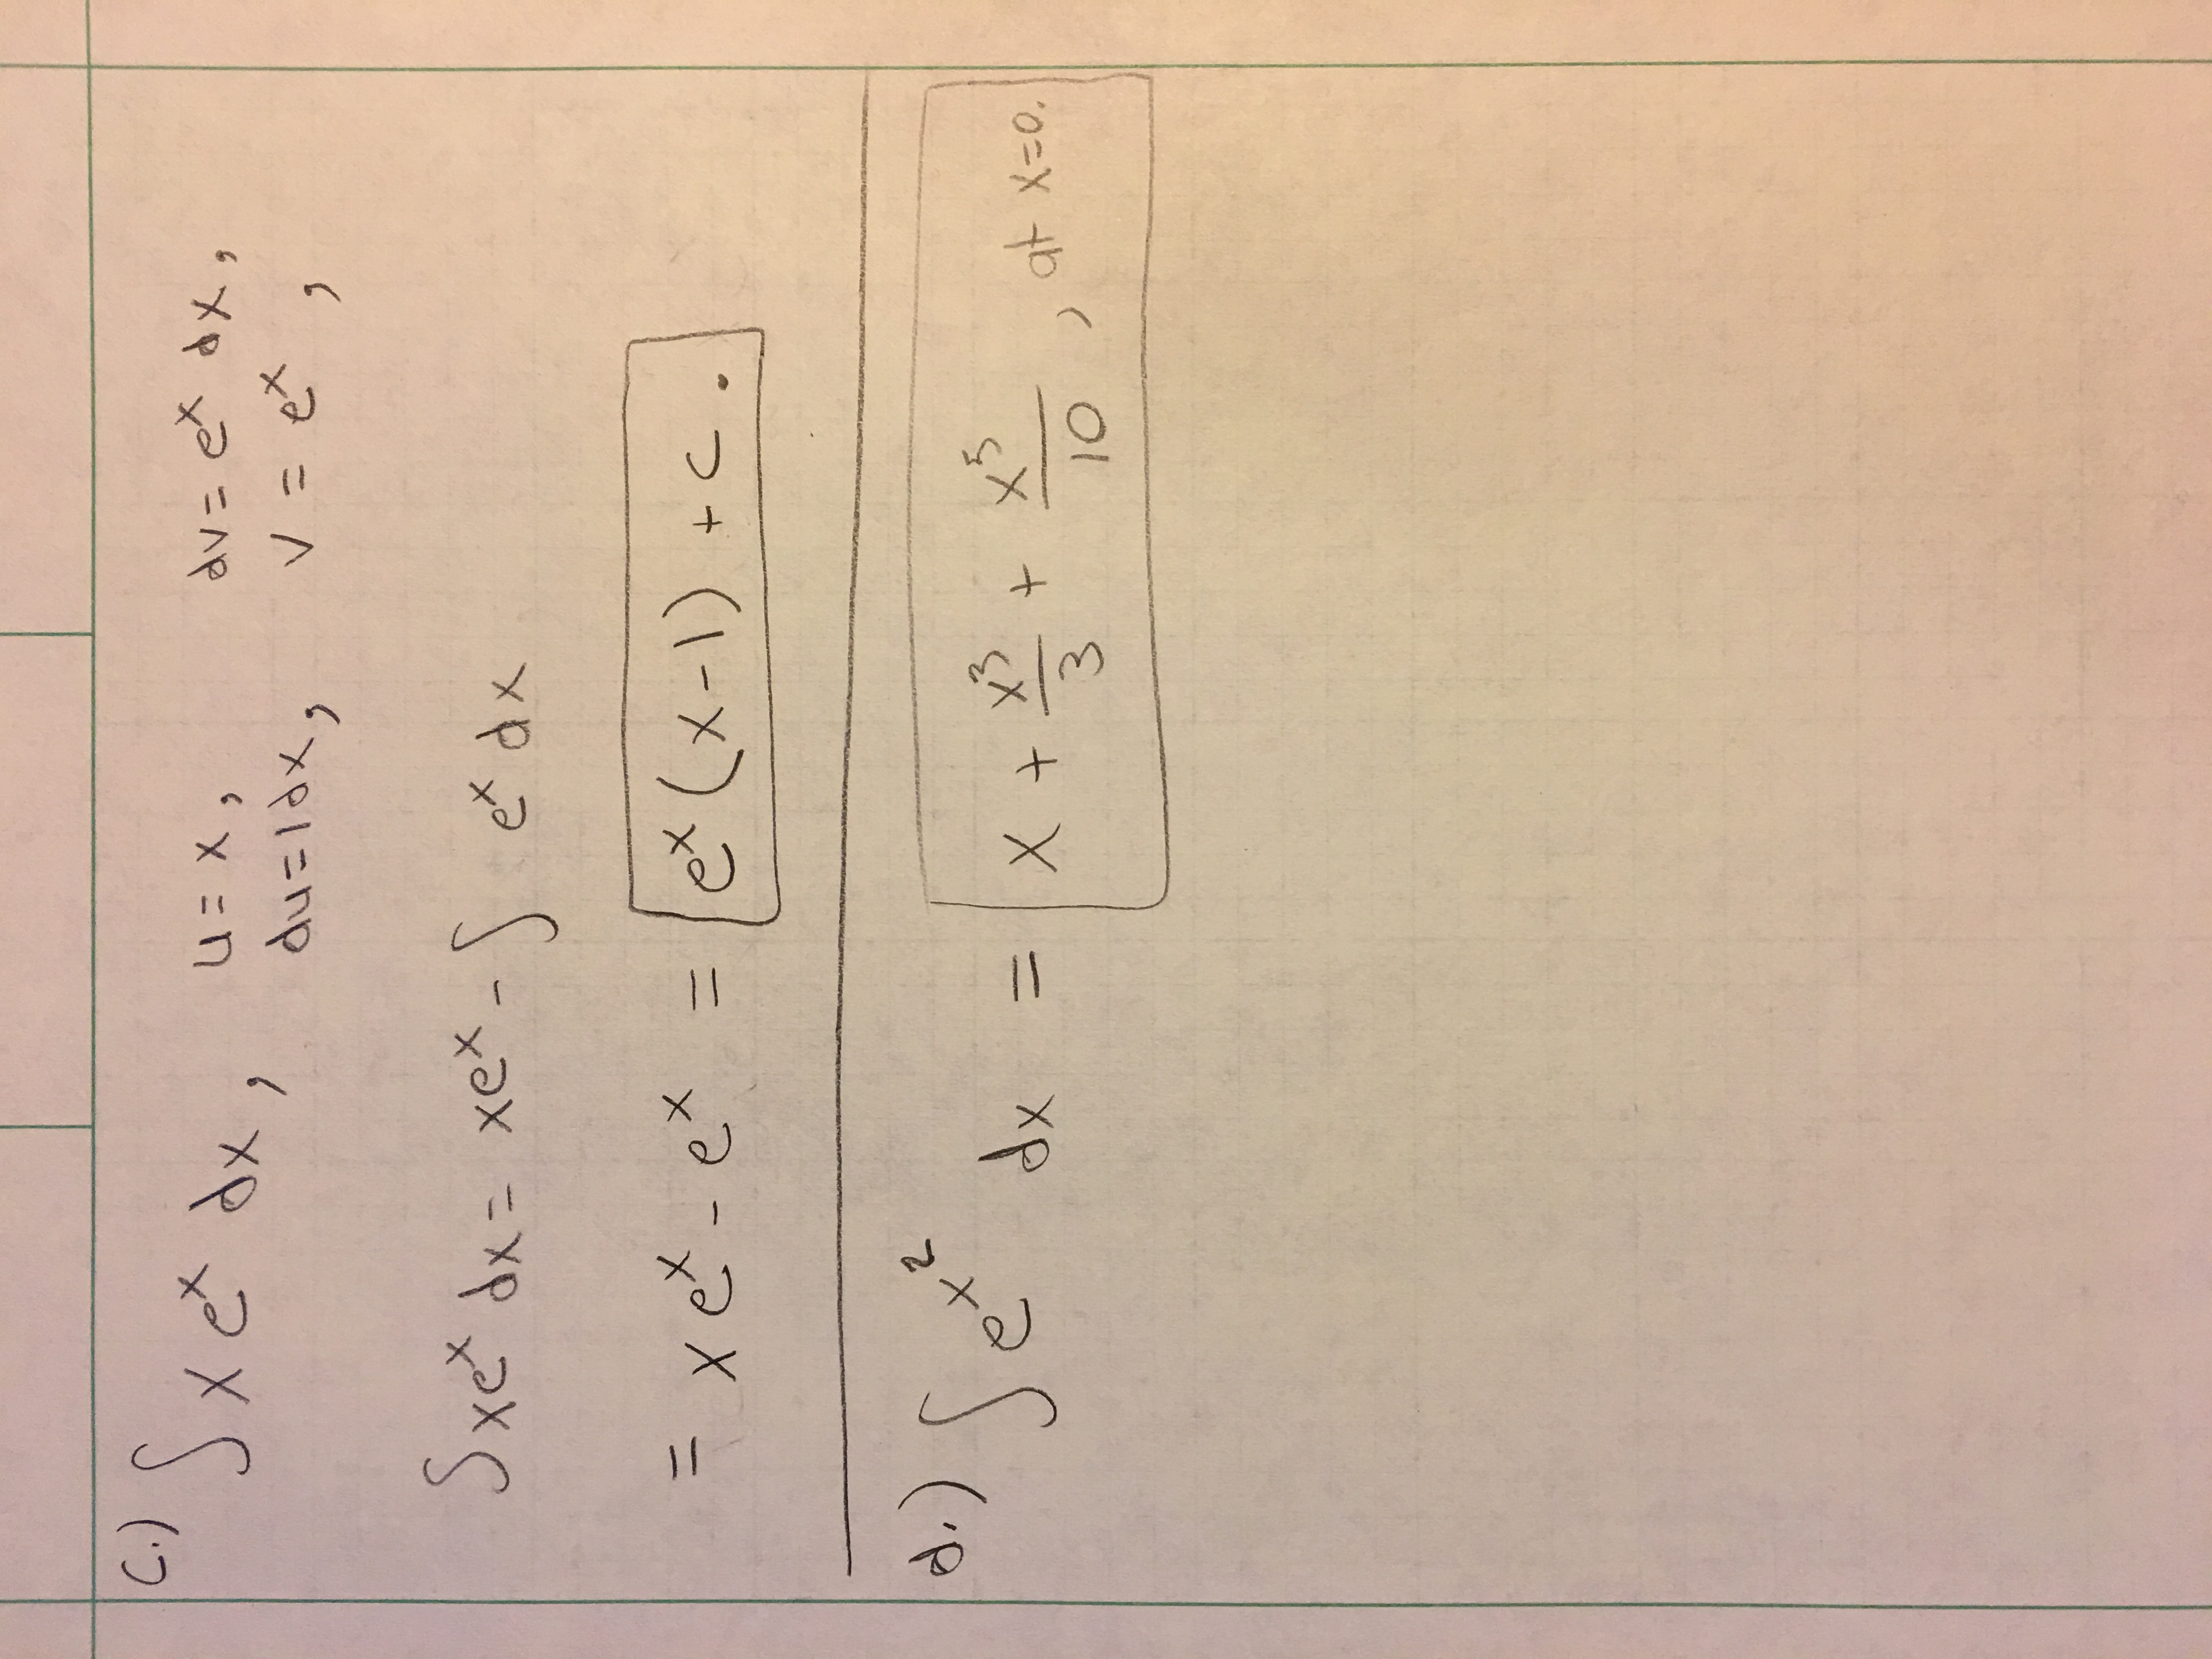 c.) ∫ x eˣ dx, u = x, dv = eˣ dx,
du = 1dx, v = eˣ,
∫ xeˣ dx = xeˣ - ∫ eˣ dx
= x eˣ - eˣ = eˣ (x-1) + c.
d.) ∫ e^x² dx = x + x³/3 + x⁵/10, at x=0.